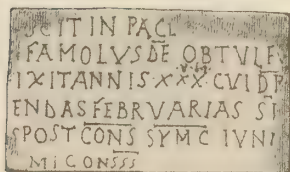 CIT IN PACE
FAMOLVS DE OBTVLF
IXIT ANNIS XXX
ENDAS FEBRVARIAS SI
SPOST CONS SYMC IVNI
MI CONSSS